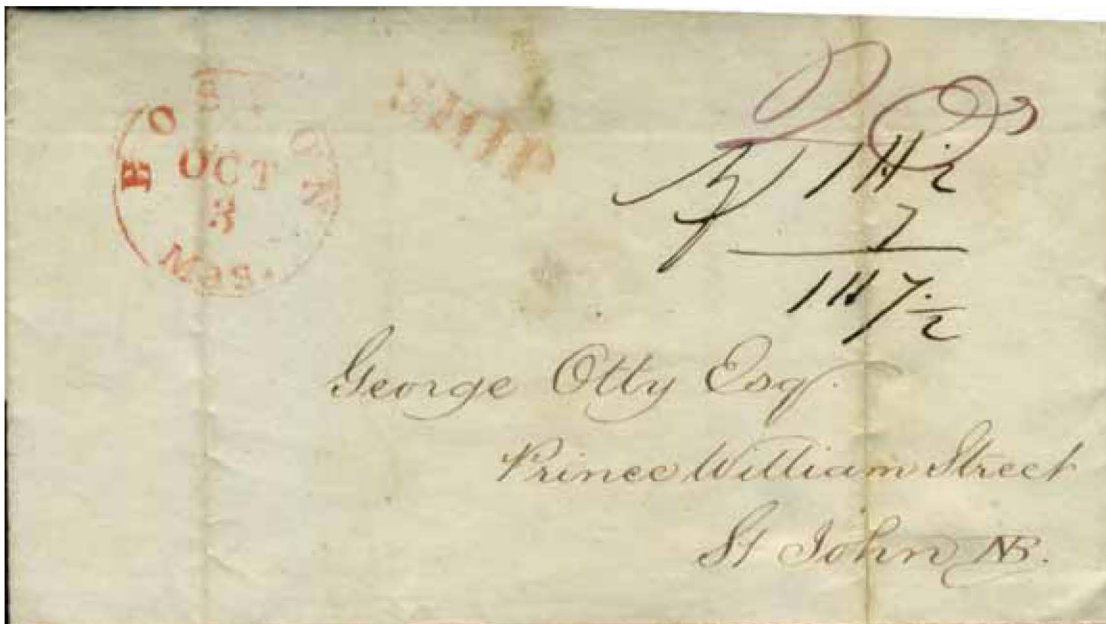 BOSTON
OCT
3
Mas.
SHIP
7
George Otty Esq.
Prince William Street
St John NB.